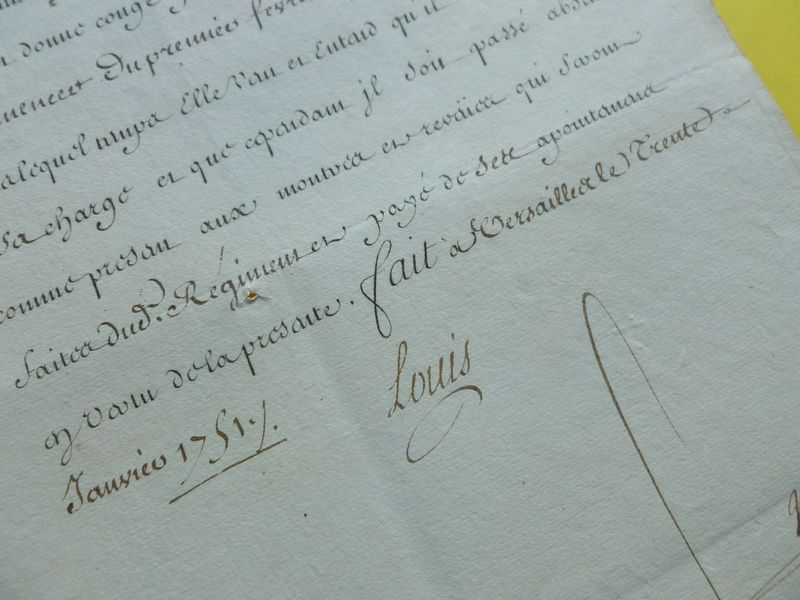 donne congé
Du premier fevr
auquel n'aye Elle Veut et Entend qu'il
Sa charge et que cependant jl soit passé absen
comme present aux montres et reveües qui Seront
faites dud. Regiment et payé de Ses apointemens
en Vertu de la presente. fait à Versailles le Trente
Janvier 1751./.
Louis